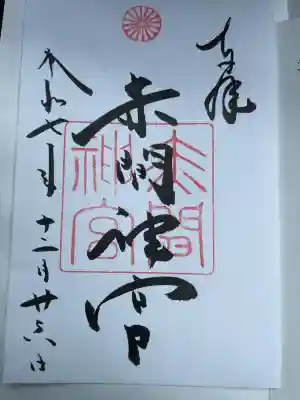 奉拝
赤間神宮
赤間神宮
令和七年十二月廿六日